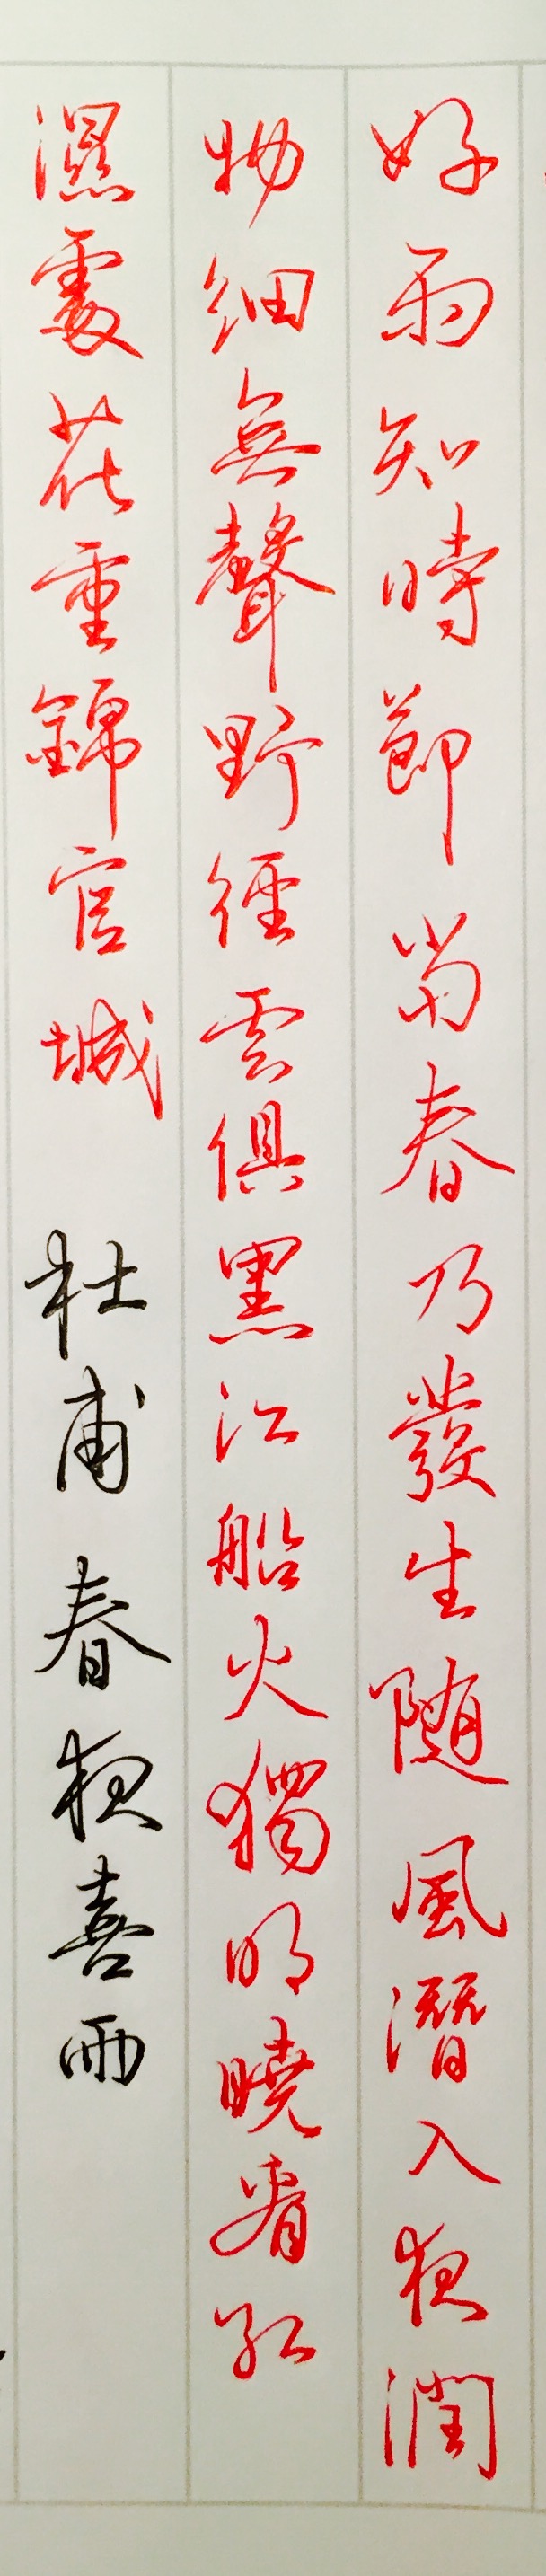 好雨知時節當春乃發生随風潛入夜潤
物細無聲野徑雲俱黑江船火獨明曉看紅
濕處花重錦官城 杜甫 春夜喜雨